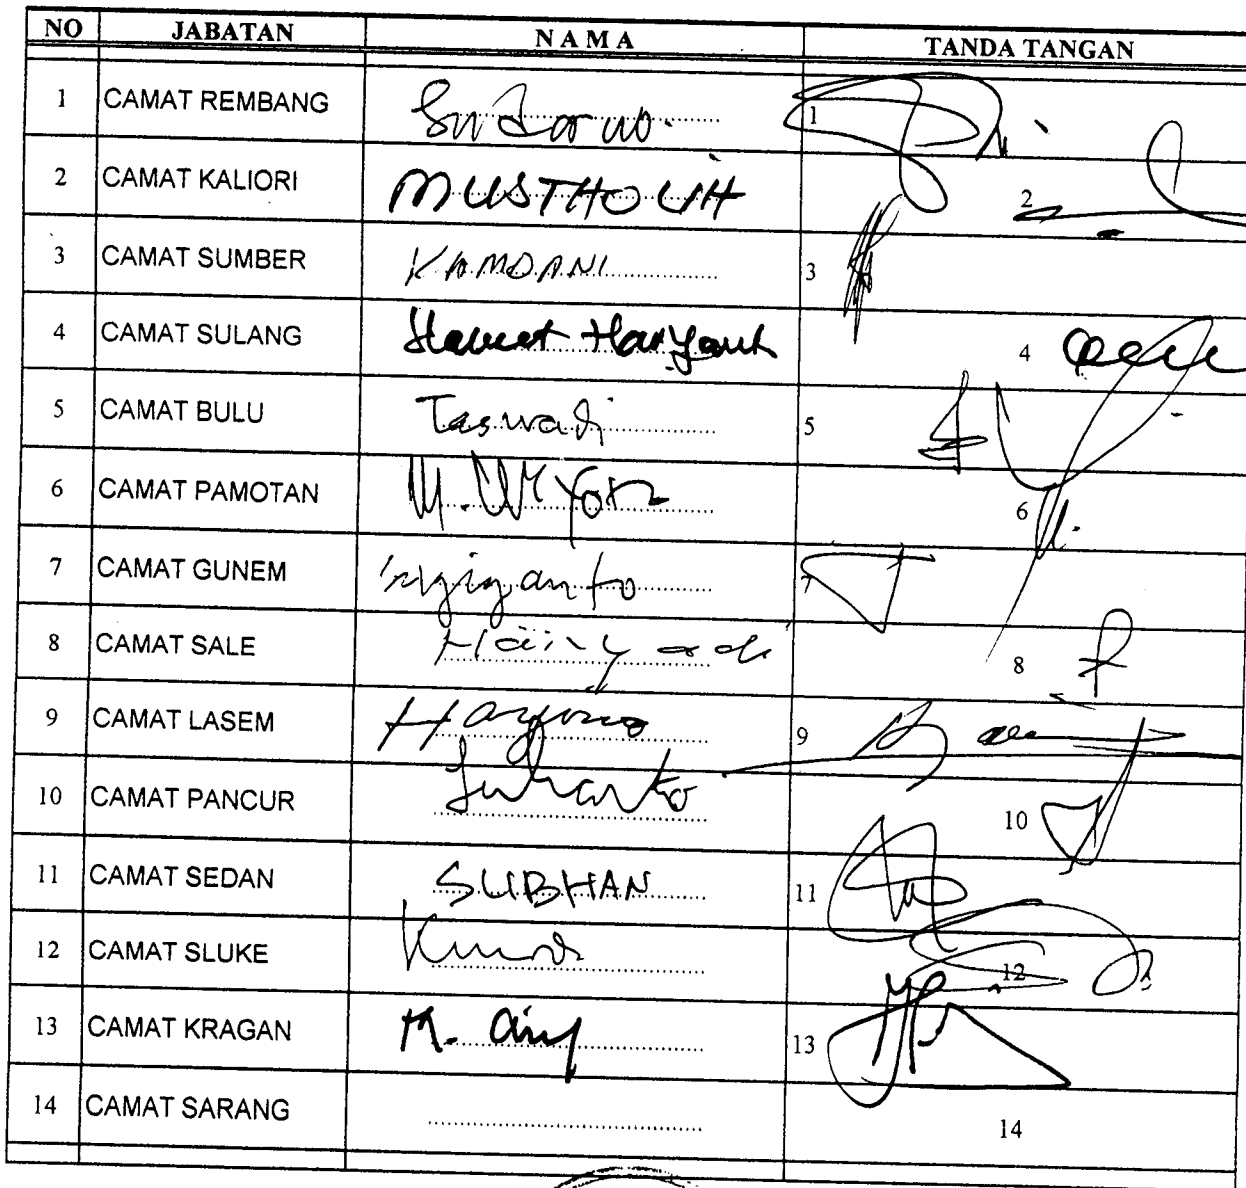 NO JABATAN NAMA TANDA TANGAN
1 CAMAT REMBANG Sudarno. 1
2 CAMAT KALIORI MUSTHOLIH 2
3 CAMAT SUMBER KAMDANI 3
4 CAMAT SULANG Slamet Haryanto 4
5 CAMAT BULU Taswadi 5
6 CAMAT PAMOTAN M. Wiyoto 6
7 CAMAT GUNEM 7
8 CAMAT SALE Hariyadi 8
9 CAMAT LASEM Haryono 9
10 CAMAT PANCUR Suharto 10
11 CAMAT SEDAN SUBHAN 11
12 CAMAT SLUKE 12
13 CAMAT KRAGAN M. 13
14 CAMAT SARANG 14